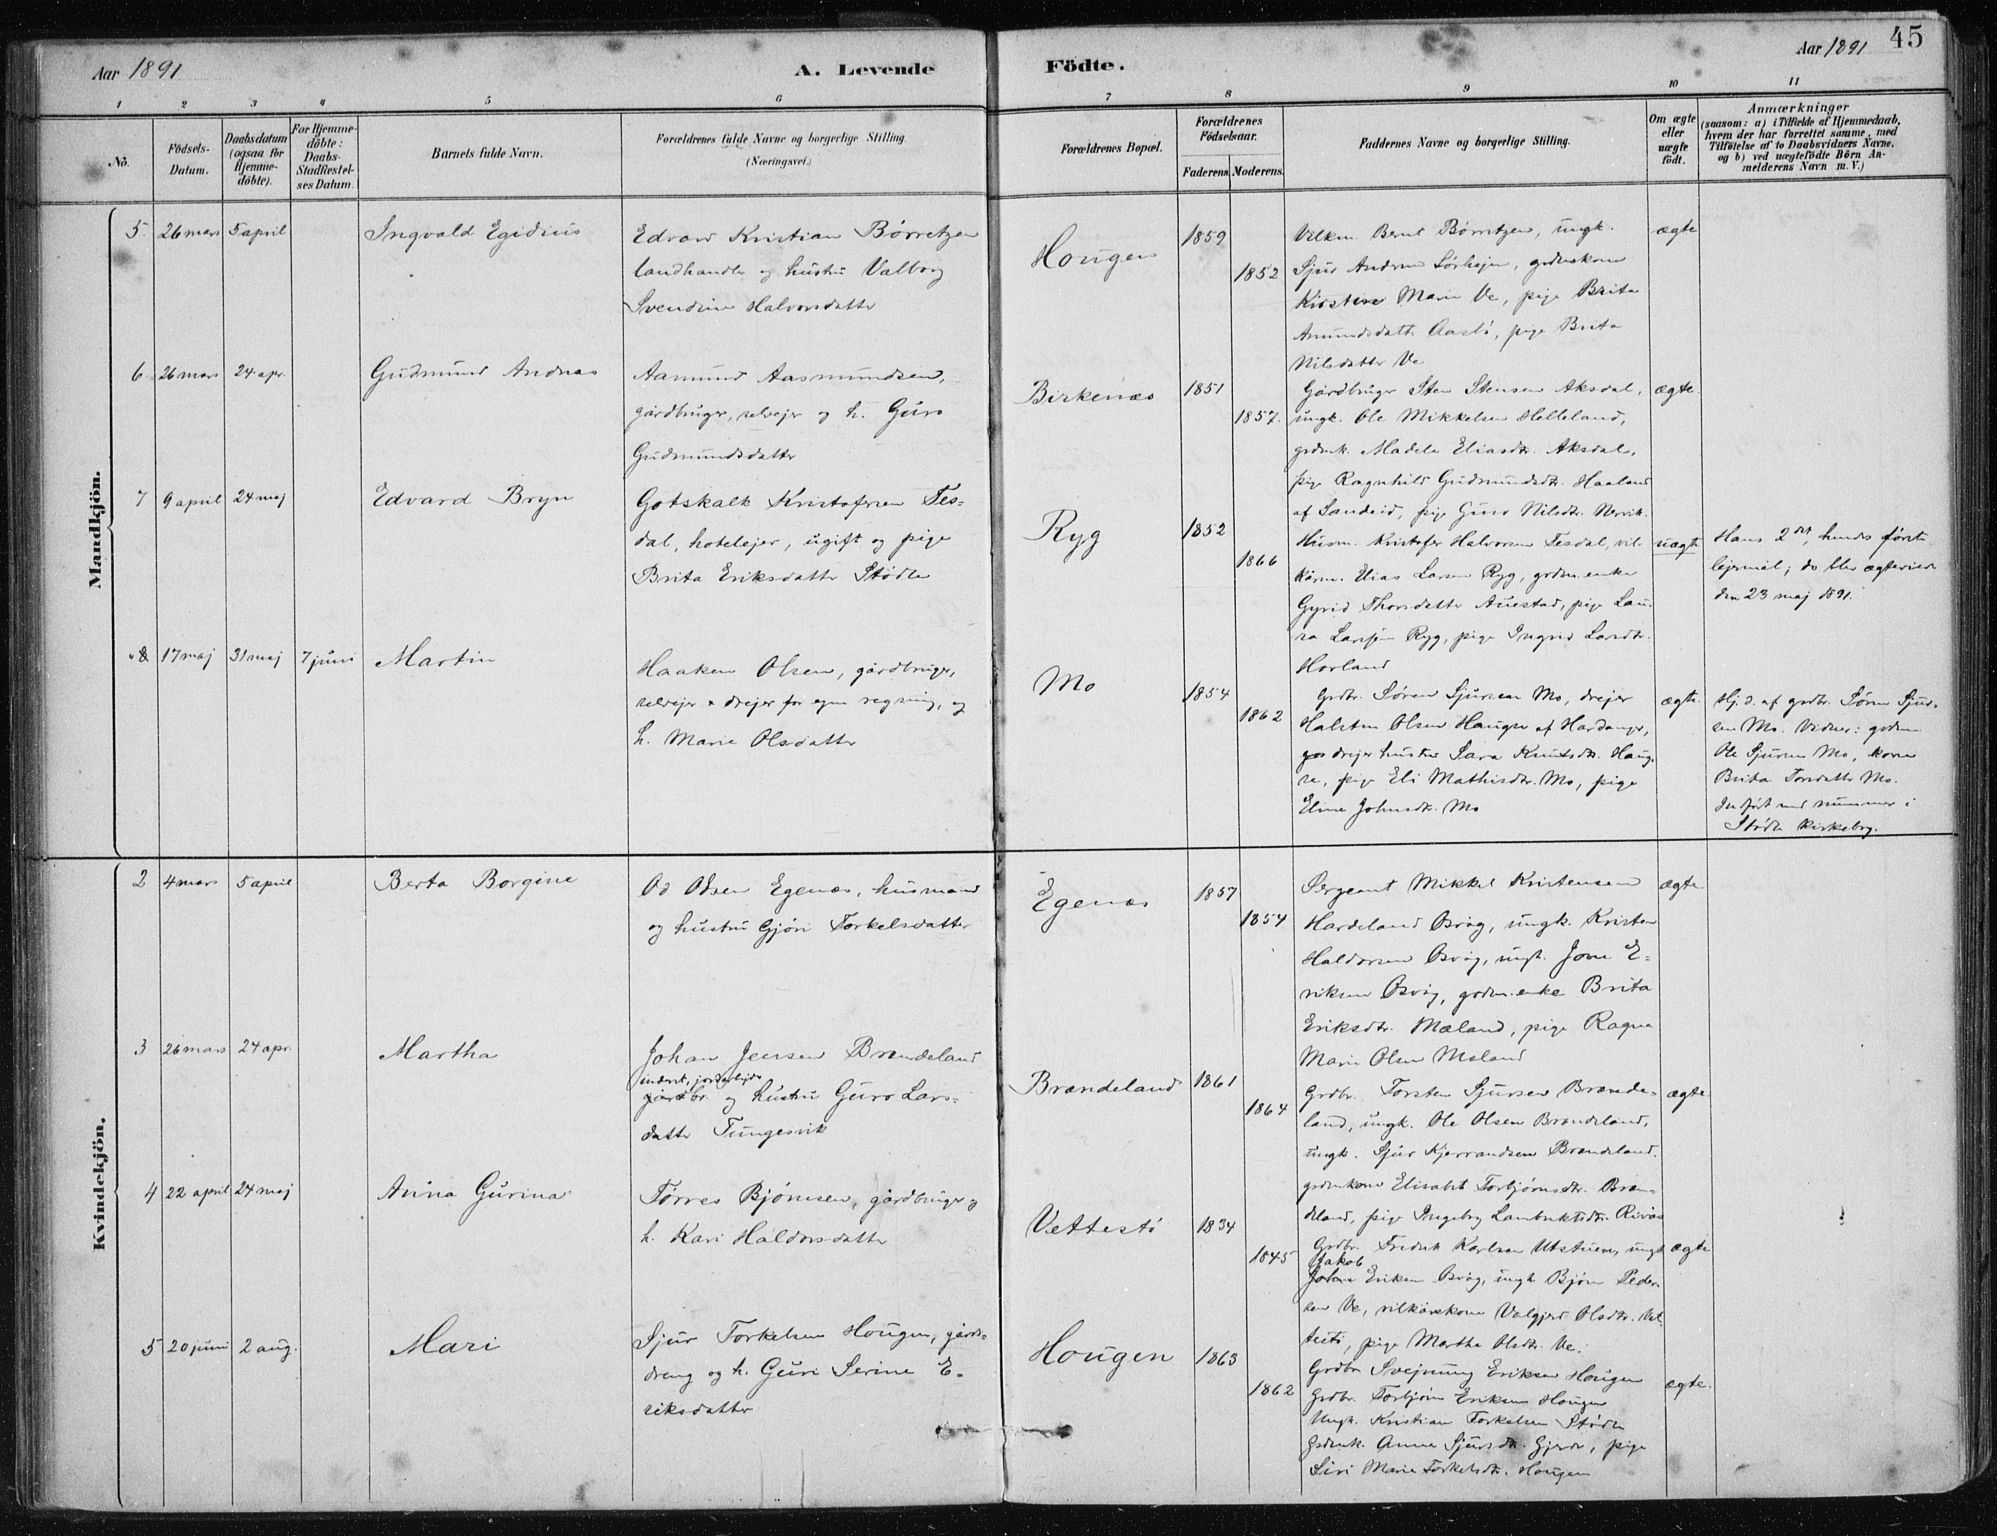 Aar 1891
A. Levende Födte.
Aar 1891
45
1 2 3 4 5 6 7 8 9 10 11
No.
Födsels-Datum.
Daabsdatum (ogsaa for Hjemmedöbte).
For Hjemmedöbte: Daabs-Stadfæstelses Datum.
Barnets fulde Navn.
Forældrenes fulde Navne og borgerlige Stilling (Næringsvei.)
Forældrenes Bopæl.
Forældrenes Födselsaar.
Faderens. Moderens.
Faddernes Navne og borgerlige Stilling.
Om ægte eller uægte födt.
Anmærkninger
(saasom: a) i Tilfælde af Hjemmedaab, hvem der har forrettet samme, med Tilföielse af to Daabsvidners Navne, og b) ved uægtefödte Börn Anmelderens Navn m. V.)
Mandkjön.
5. 26 mars 5 april
Ingvald Egidius
Edvard Kristian Börretzen
landhandler og hustru Valborg
Svendine Halvorsdatter
Hougen
1859
1852
Vilkm. Bernt Börretzen, ungk.
Sjur Andreas Sörhejm, grdmskone
Kirstine Marie Ve, pige Brita
Amundsdatt. Aastö, pige Brita
Nilsdatter Ve
ægte
6 26 mars 24 apr.
Gudmund Andreas
Aamund Aasmundsen,
gårdbruger, selvejer og h. Guro
Gudmundsdatter
Birkenæs
1851
1857.
Gårdbruger Sten Stensen Aksdal,
ungk. Ole Mikkelsen Helleland,
grdmk. Madela Eliasdtr. Aksdal,
pige Ragnhild Gudmundsdtr. Haaland
af Sandeid, pige Guro Nilsdtr. Nervik.
ægte
7 9 april 24 maj
Edvard Bryn
Gotskalk Kristofersen Tes=
dal, hotelejer, ugift og pige
Brita Eriksdatter Stödle
Ryg
1852
1866
Husm. Kristofer Halvorsen Tesdal, vil-
kårm. Elias Larsen Ryg, grdm.enke
Gyrid Thorsdatter Auestad, pige Lau-
ra Larsen Ryg, pige Ingrid Larsdtr.
Horland
uægte
Hans 2det, hendes förste
lejermål; de blev ægteviede
den 23 maj 1891.
8 17 maj 31 maj 7 juni
Martin
Haaken Olsen, gårdbruger,
selvejer & drejer for egen regning, og
h. Marie Olsdatter
Mo
1854
1862
Grdbr. Sören Sjursen Mo, drejer
Halsten Olsen Haugse af Hardanger,
drejer hustru Sara Knutsdtr. Haug-
se, pige Eli Mathisdtr. Mo, pige
Eline Johnsdtr. Mo
ægte.
Hj.d. af grdbr. Sören Sjur-
sen Mo. Vidner: grdm
Ole Sjursen Mo, kone
Brita Torsdatter Mo.
Indfört med nummer i
Stödle kirkebog.
Kvindekjön.
2 4 mars 5 april
Berta Borgine
Od Olsen Egenæs, husmand
og hustru Gjöri Torkelsdatter
Egenæs
1857
1854
Sergeant Mikkel Kristensen
Hardeland Osvåg, ungk. Kristen
Haldorsen Osvåg, ungk. Jone E-
riksen Osvåg, grdm.enke Brita
Eriksdtr. Mæland, pige Ragna
Marie Olsen Mæland
ægte.
3 26 mars 24 apr.
Martha
Johan Jensen Brændeland
inderst, jordarbejder
gårdbr. og hustru Guro Lars=
datter Tungesvik
Brændeland
1861
1864
Grdbr. Torsten Sjursen Brænde-
land, ungk. Ole Olsen Brændeland,
ungk. Sjur Kjerrandsen Brændeland,
grdmkone Elisabet Torbjörnsdtr. Bræn-
deland, pige Ingeborg Lambriktsdtr. Rivås
ægte
4 22 april 24 maj
Anna Gurina
Törres Bjömsen, gårdbruger og
h. Kari Haldorsdatter
Vettestö
1834
1845
Grdbr. Fredrik Karlsen Utstuen, ungk.
Jakob
Johan Eriksen Osvåg, ungk. Bjön Peder-
sen Ve, vilkårskone Valgjerd Olsdtr. Vet-
testö, pige Martha Olsdtr. Ve.
ægte
5 20 juni 2 aug.
Mari
Sjur Torkelsen Hougen, gårds-
dreng og h. Guri Serine E-
riksdatter
Hougen
1863
1862
Grdbr Svejnung Eriksen Hougen
Grdbr. Torbjörn Eriksen Hougen
Ungk. Kristian Torkelsen Stödle
Grdmk. Anna Sjursdtr. Gjerde, pige
Siri Marie Torkelsdtr. Hougen
ægte.